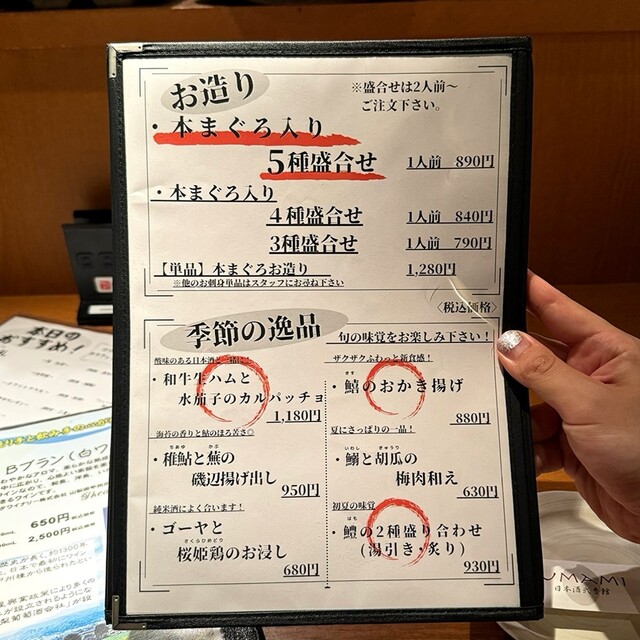 お造り
※盛合せは2人前～
ご注文下さい。
・本まぐろ入り
5種盛合せ 1人前 890円
・本まぐろ入り
4種盛合せ 1人前 840円
3種盛合せ 1人前 790円
【単品】本まぐろお造り 1,280円
※他のお刺身単品はスタッフにお尋ね下さい
〈税込価格〉
季節の逸品 旬の味覚をお楽しみ下さい！
酸味のある日本酒と一緒に！
・和牛生ハムと
水茄子のカルパッチョ
1,180円
海苔の香りと鮎のほろ苦さ◎
ちあゆ かぶ
・稚鮎と蕪の
磯辺揚げ出し
950円
純米酒によく合います！
・ゴーヤと
さくらひめどり
桜姫鶏のお浸し
680円
ザクザクふわっと新食感！
きす
・鱚のおかき揚げ
880円
夏にさっぱりの一品！
いわし きゅうり
・鰯と胡瓜の
梅肉和え
630円
初夏の味覚
はも
・鱧の2種盛り合わせ
(湯引き・炙り)
930円
本日の
おすすめ！
Bブラン(白ワ
650円
2,500円
UMAMI
日本酒弐番館